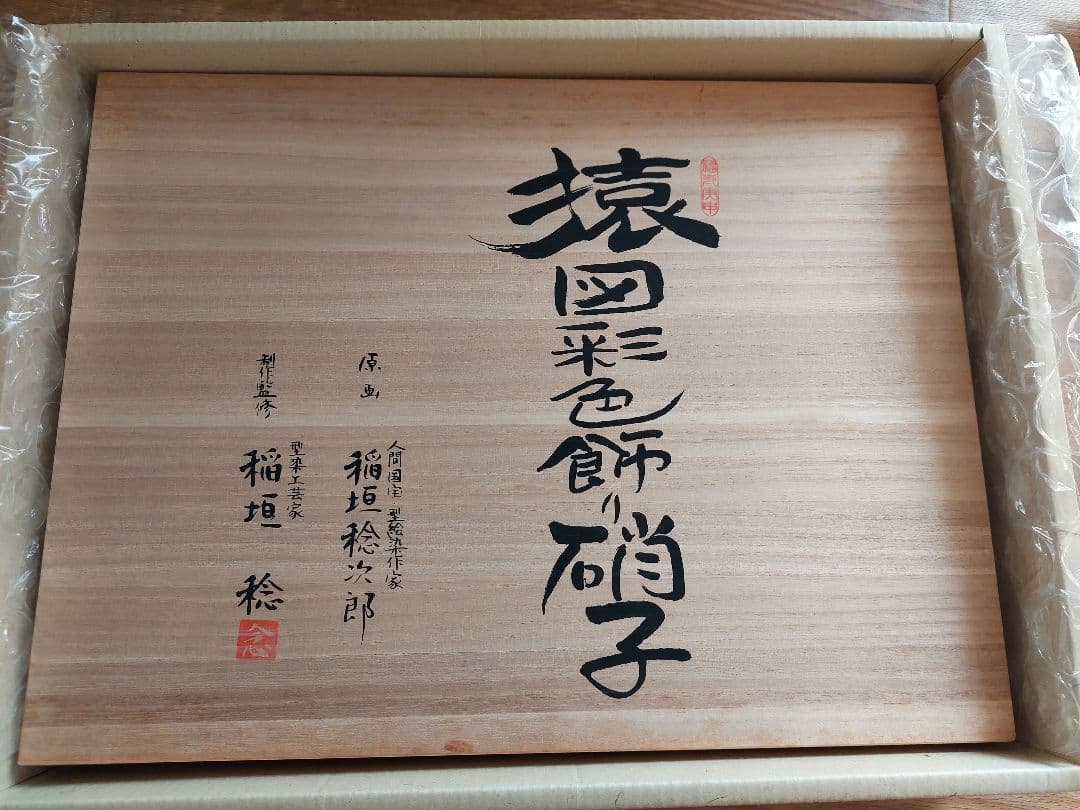 猿図彩色飾り硝子
原画
人間国宝・型絵染作家
稲垣稔次郎
制作監修
型染工芸家
稲垣 稔